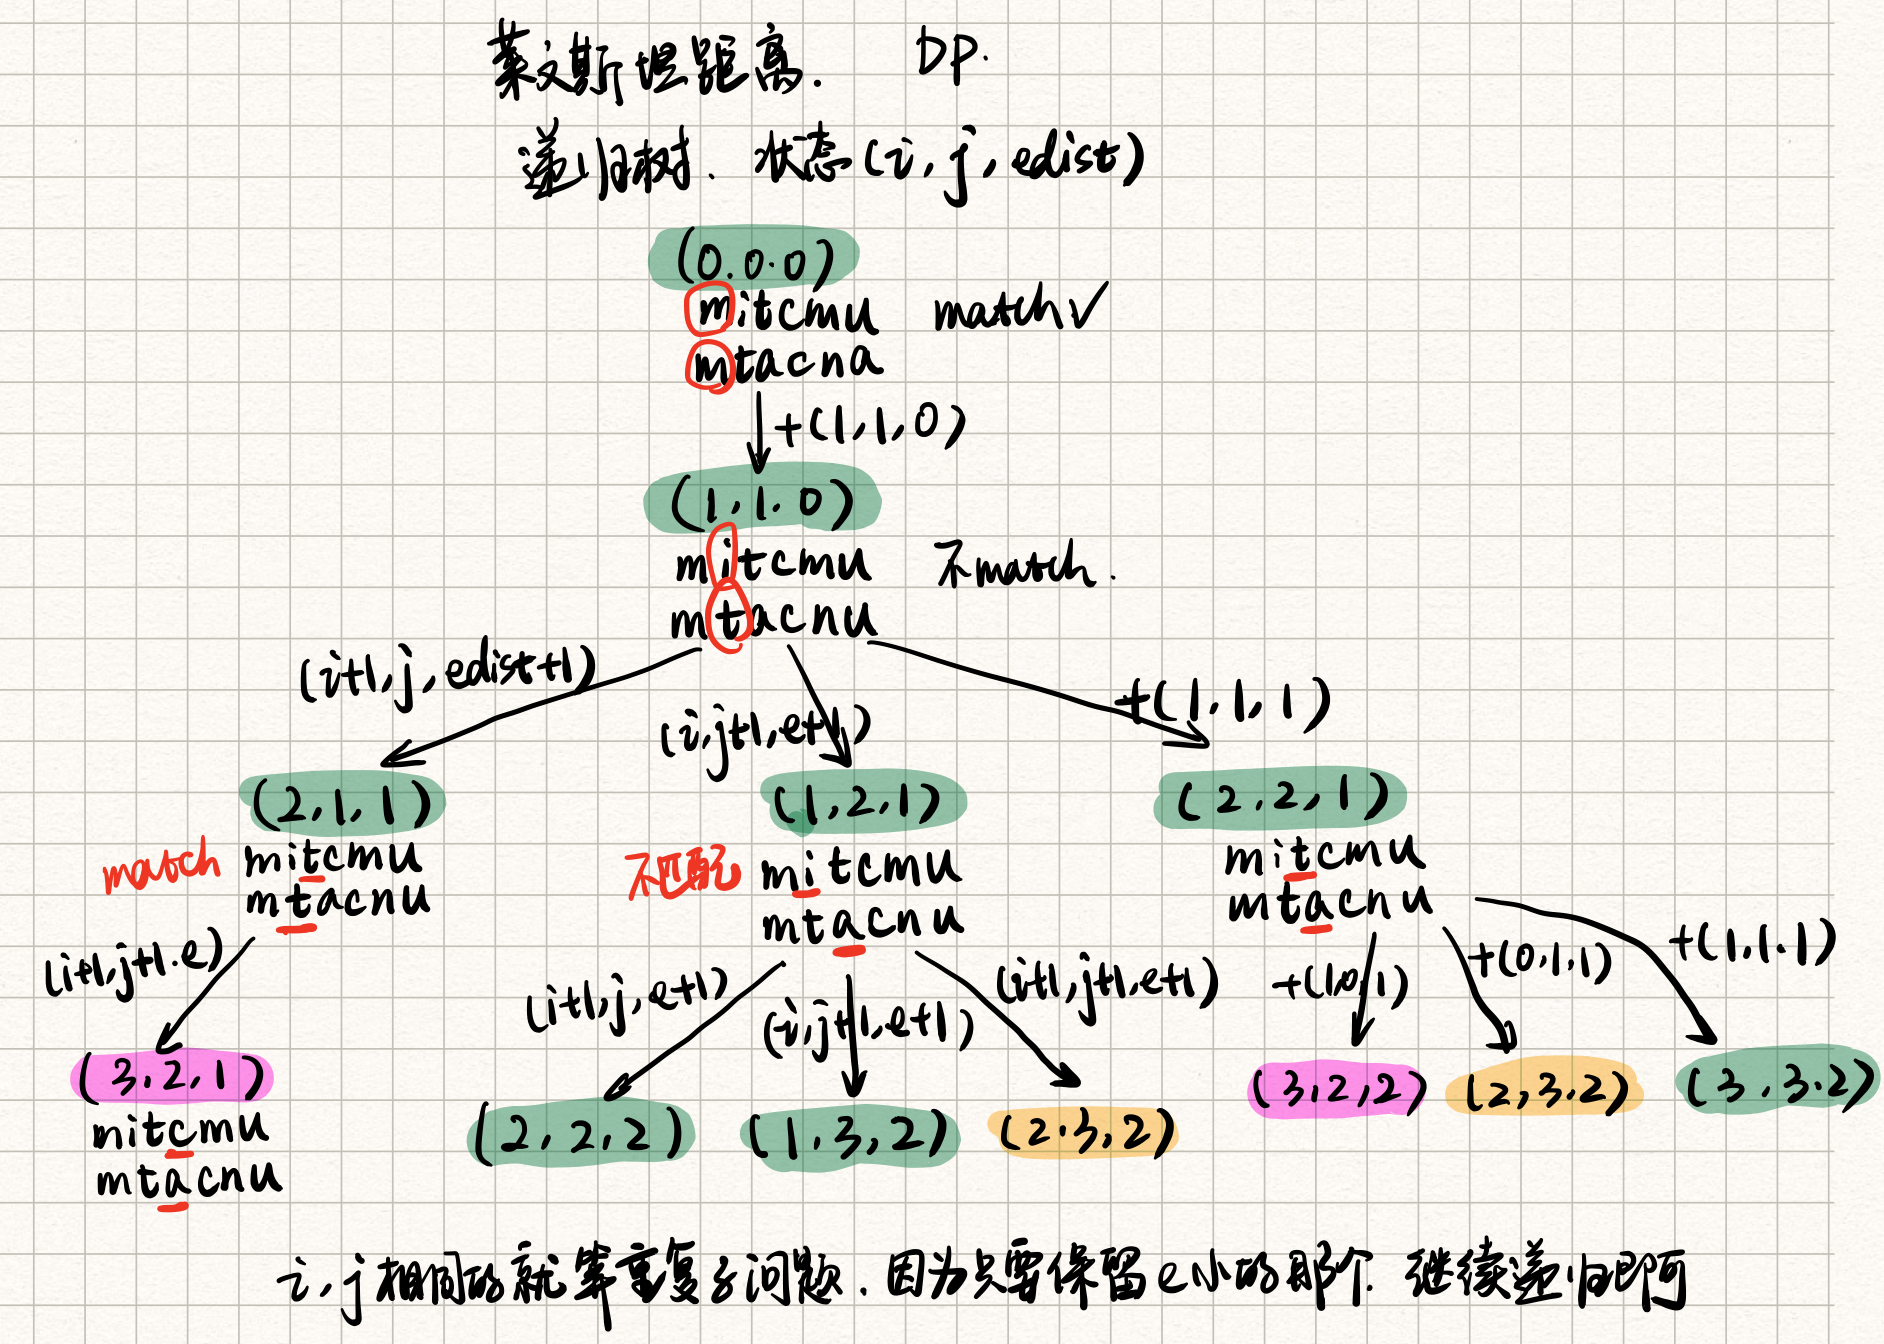 莱文斯坦距离. DP.
递归树. 状态(i, j, edist)
(0.0.0)
mitcmu match✓
mtacna
+(1,1,0)
(1,1.0)
mitcmu 不match.
mtacnu
(i+1,j,edist+1)
(i,j+1,e+1)
+(1,1,1)
(2,1,1)
(1,2,1)
(2.2,1)
match
mitcmu
mtacnu
不匹配
mitcmu
mtacnu
mitcmu
mtacnu
(i+1,j+1.e)
(i+1,j,e+1)
(i,j+1,e+1)
(i+1,j+1,e+1)
+(1,0,1)
+(0,1,1)
+(1,1.1)
(3.2,1)
mitcmu
mtacnu
(2,2,2)
(1.3,2)
(2.3,2)
(3,2,2)
(2,3.2)
(3,3.2)
i,j相同的就算重复子问题.因为只要保留e小的那个.继续递归即可